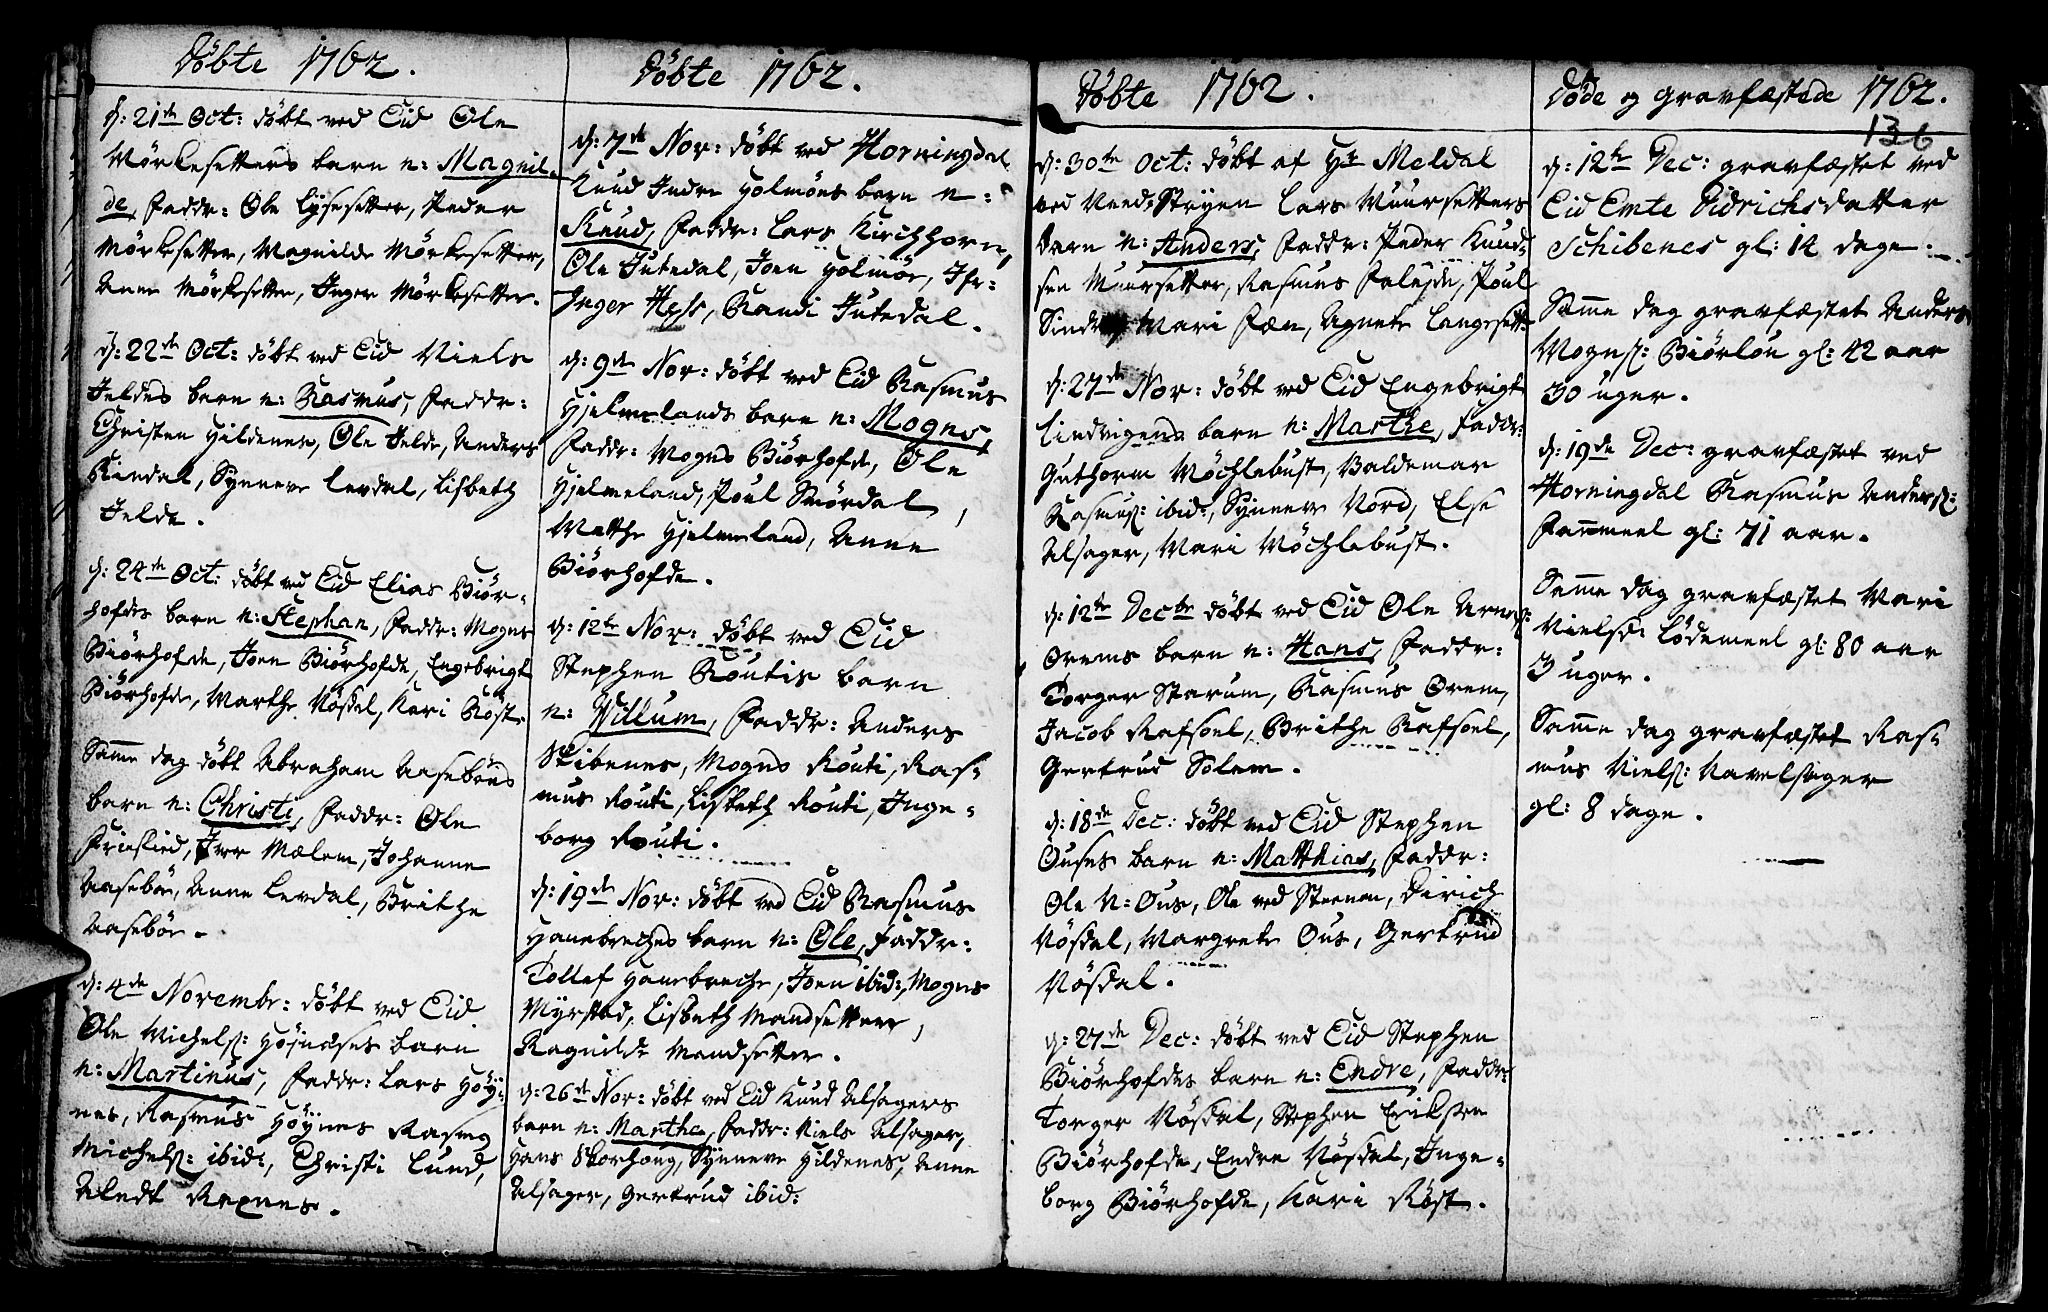 Døbte 1762.
d: 21de Oct: døbt ved Eid Ole
Mørkesetters barn n: Magnil-
de, Faddr: Ole Lysesetter, Peder
Mørkesetter, Magnilde Mørkesetter,
Anne Mørkesetter, Inger Mørkesetter.
d: 22de Oct: døbt ved Eid Niels
Jeldes barn n: Rasmus, Faddr:
Christen Hildenes, Ole Jelde, Anders
Kindal, Synneve Levdal, Lisbeth
Jelde.
d: 24de Oct: døbt ved Eid Elias Biør-
hofdes barn n: Stephan, Faddr: Mogns
Biørhofde, Joen Biørhofde, Engebrigt
Biørhofde, Marthe Nøsdal, Kari Røst.
Samme dag døbt Abraham Aasebøes
barn n: Christi, Faddr: Ole
Friesvied, Iver Mælem, Johanne
Aasebøe, Anne Levdal, Brithe
Aasebøe.
d: 4de Novembr: døbt ved Eid
Ole Michels: Højnæses barn
n: Martinus, Faddr: Lars Høy-
nes, Rasmus Høynes Rasmg
Michels: ibid:, Christi Lund,
Aledt Raxnes.
Døbte 1762.
d: 7de Nor: døbt ved Horningdal
Knud Indre Holmøns barn n:
Knud, Faddr: Lars Kirchhorn,
Ole Jutedal, Joen Holmøe, Jfr:
Inger Hess, Randi Jutedal.
d: 9de Nor: døbt ved Eid Rasmus
Hjelmelands barn n: Mogns,
Faddr: Mogns Biørhofde, Ole
Hjelmeland, Poul Smørdal,
Matthe Hjelmeland, Anne
Biørhofde.
d: 12te Nor: døbt ved Eid
Stephen Routis barn
n: Willum, Faddr: Anders
Skibenes, Mogns Routi, Ras-
mus Routi, Lisbeth Routi, Inge-
borg Routi.
d: 19de Nor: døbt ved Eid Rasmus
Hanebreches barn n: Ole, Faddr:
Tollef Hanebreche, Joen ibid:, Mogns
Myrstad, Lisbeth Mandsetter,
Ragnilde Mandsetter.
d: 26de Nor: døbt ved Eid Knud Alsagers
barn n: Marthe, Faddr: Niels Alsager,
Hans Skorhoug, Synneve Hildenes, Anne
Alsager, Gertrud ibid:
Døbte 1762.
d: 30te Oct: døbt af Hr Meldal
ved Need-Stryen Lars Muursetters
barn n: Anders, Faddr: Peder Knud-
sen Muursetter, Rasmus Faleyde, Poul
Sindre, Mari Fæn, Agnete Langesett-
d: 27de Nor: døbt ved Eid Engebrigt
Lindvigens barn n: Marthe, Faddr:
Guthorm Møchlebust, Valdemar
Rasmus: ibid:, Synneve Nord, Else
Alsager, Mari Møchlebust.
d: 12te Decbr døbt ved Eid Ole Arnes:
Orems barn n: Hans, Faddr:
Torger Starum, Rasmus Orem,
Jacob Rafsoel, Brithe Rafsoel,
Gertrud Solem.
d: 18de Dec: døbt ved Eid Stephen
Ouses barn n: Matthias, Faddr:
Ole N: Ous, Ole ved Steenen, Dirich
Nøsdal, Margrete Ous, Gertrud
Nøsdal.
d: 27de Dec: døbt ved Eid Stephen
Biørhofdes barn n: Endre, Faddr:
Torger Nøsdal, Stephen Eriksen
Biørhofde, Endre Nøsdal, Inge-
borg Biørhofde, Kari Røst.
Døde og gravfæstede 1762.
136
d: 12te Dec: gravfæstet ved
Eid Emte Didrichsdatter
Schibenes gl: 12 dage.
Samme dag gravfæstet Anders
Mogns: Biørlou gl: 42 aar
30 uger.
d: 19de Dec: gravfæstet ved
Horningdal Rasmus Anders:
Fammeel gl: 71 aar.
Samme dag gravfæstet Mari
Nielsd: Lødemeel gl: 80 aar
3 uger.
Samme dag gravfæstet Ras-
mus Niels: Navelsager
gl: 8 dage.